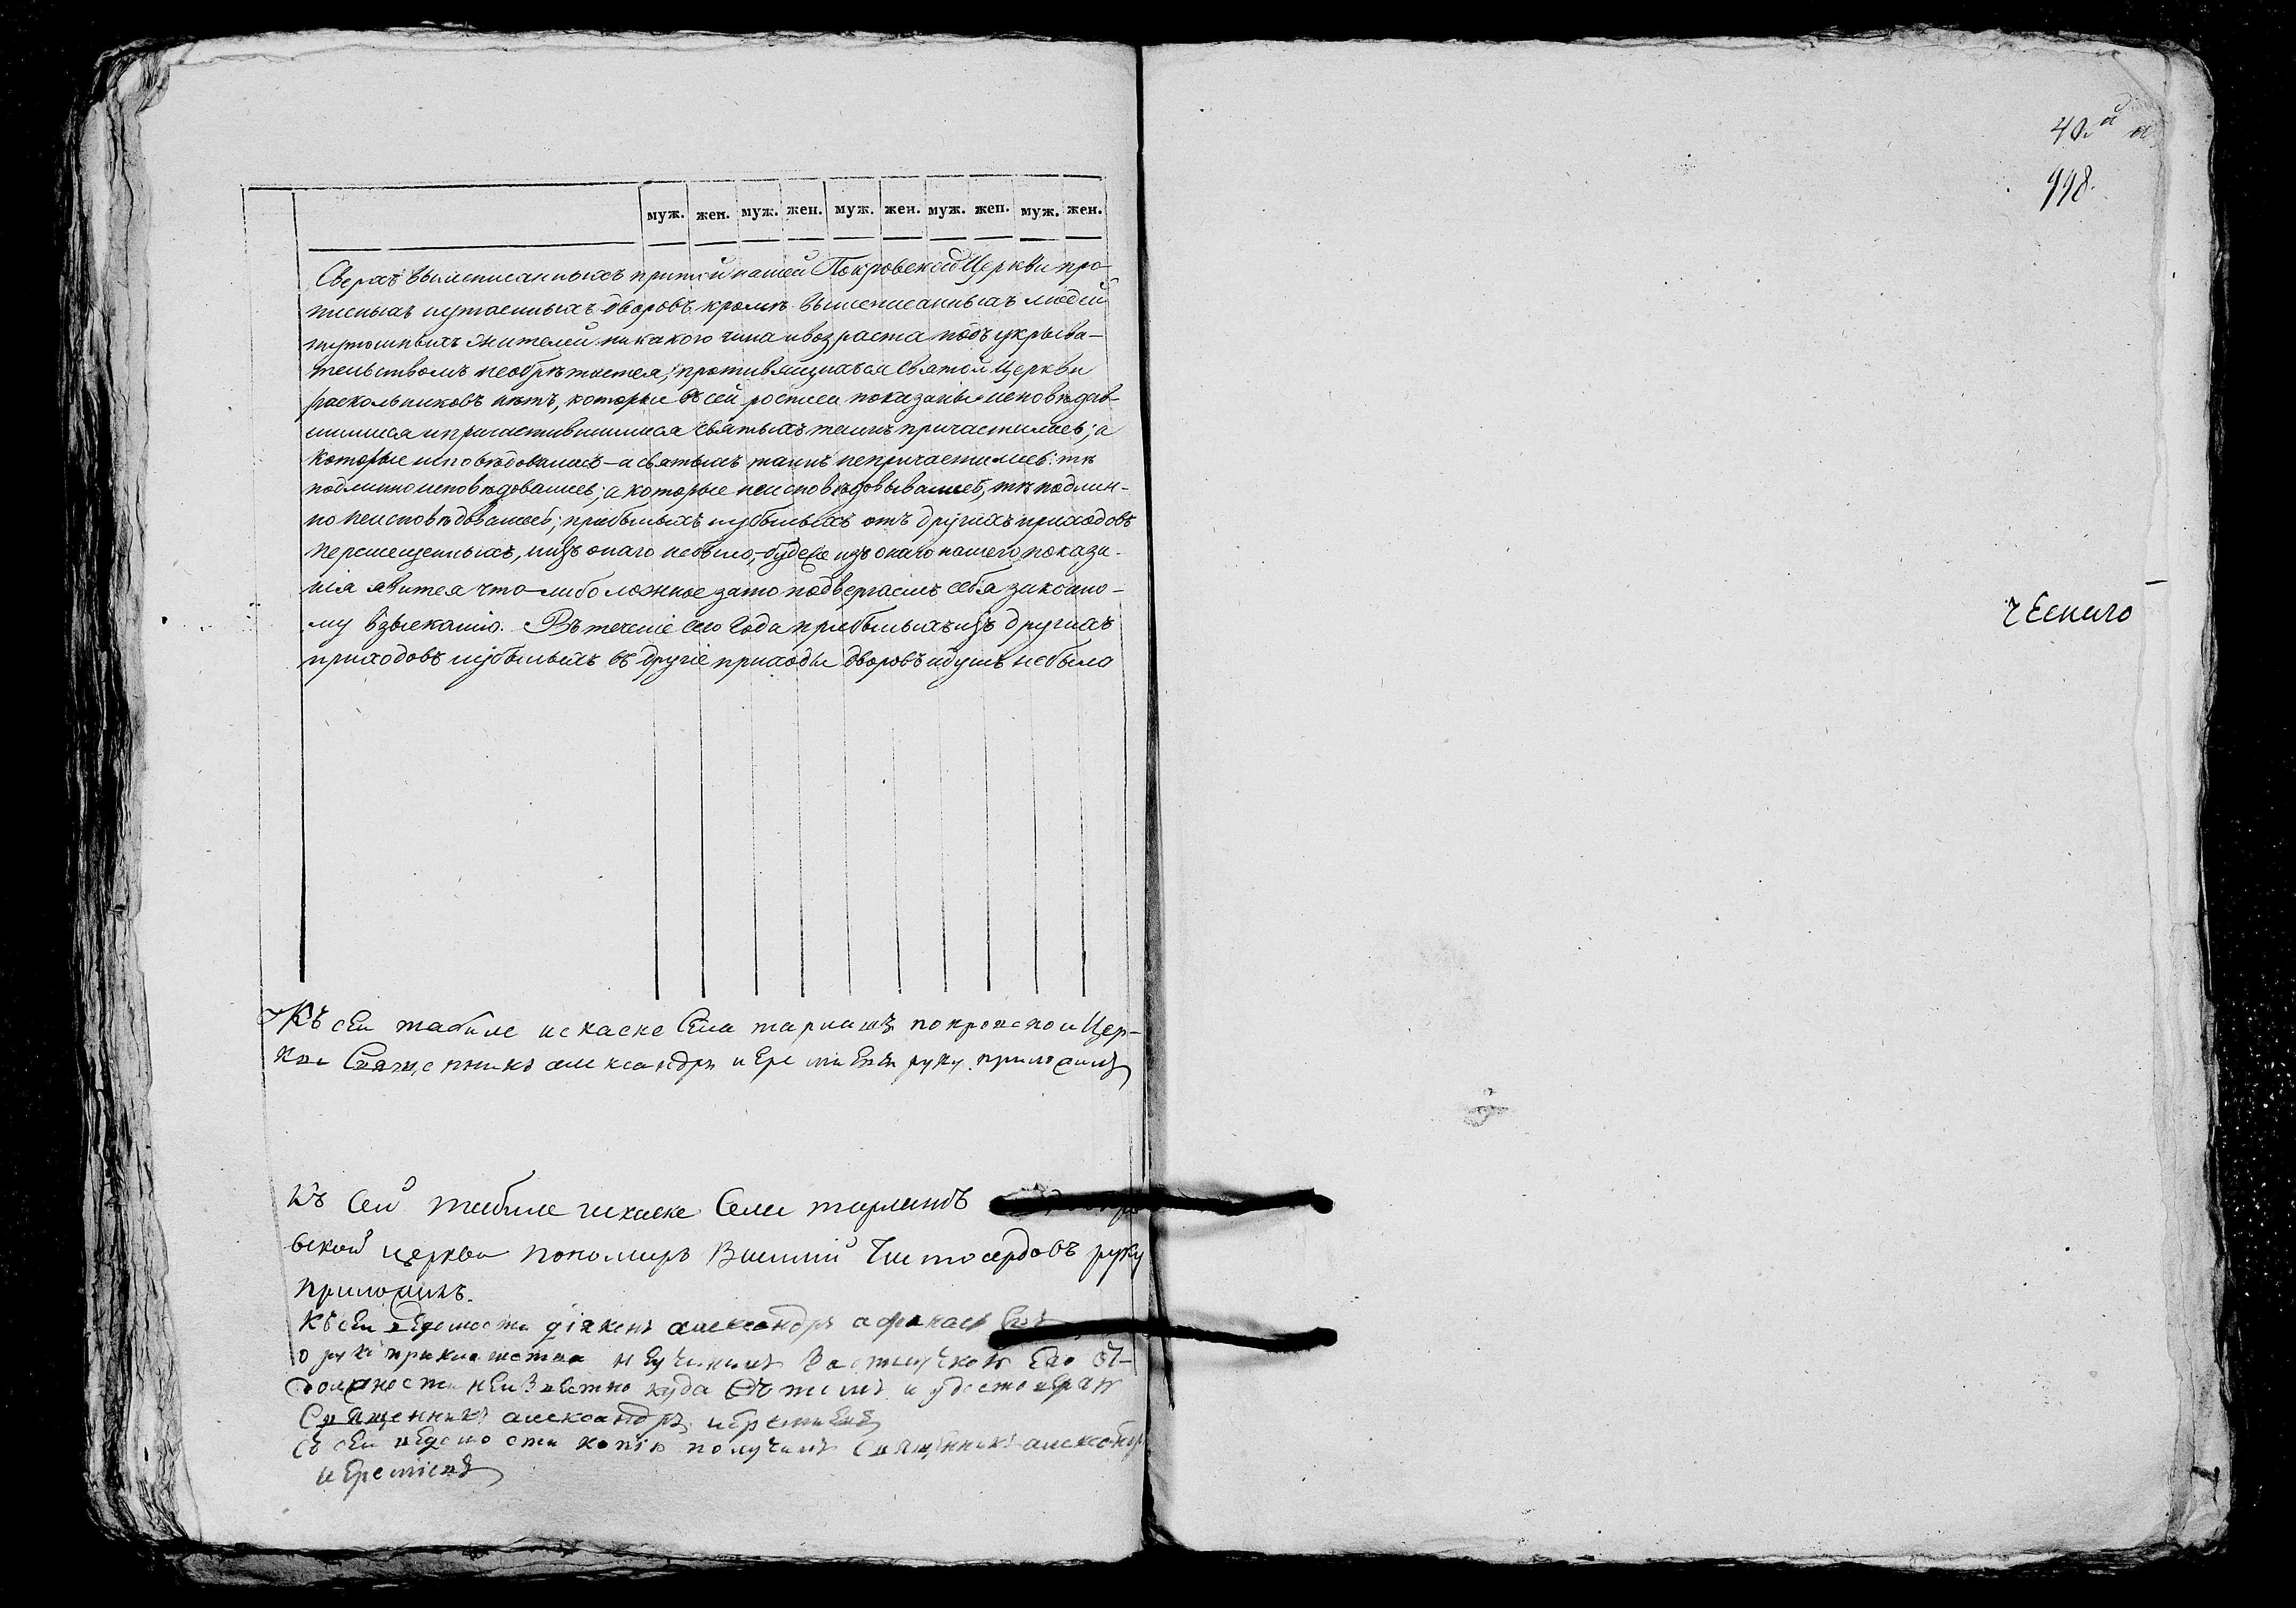 муж. жен. муж. жен. муж. жен. муж. жен. муж. жен.
Сверхъ вышеписанныхъ при той нашей Покровской Церкви про-
писныхъ и утаенныхъ дворовъ, кромѣ вышеписанныхъ людей
тутошныхъ жителей никакого чина и возраста подъ укрыва-
тельствомъ необрѣтается; противящихъся Святой Церкви
раскольниковъ нѣтъ, которые въ сей росписи показаны исповѣдав-
шимися и причастившимися святыхъ таинъ причастились; а
которые исповѣдовались - а святыхъ таинъ непричастились: тѣ
подлинно исповѣдовались; а которые неисповѣдовывались, тѣ подлин-
но неисповѣдовались; прибылыхъ и убылыхъ отъ другихъ приходовъ
перемещенныхъ, и изъ онаго небыло, - будеже изъ онаго нашего показа-
нія явится что-либо ложное зато подвергаемъ себя законно-
му взысканію. Въ теченіе сего Года прибылыхъ изъ другихъ
приходовъ и убылыхъ въ другіе приходы дворовъ и душъ небыло
Къ сеи табиле искаске Села покровскои Цер-
кви Священникъ александръ руку приложилъ
Къ сей табиле искаске Села
вской церкви пономарь Василий Чистосердовъ руку
приложилъ.
Къ сеи ведомости діяконъ александръ афанасьевъ
о руки приклатства неучинилъ Заотлучкою Его
должности неизвестно куда
Священникъ александръ
Съ сеи ведомости копію получилъ Священникъ александръ
40.й
998.
ческаго